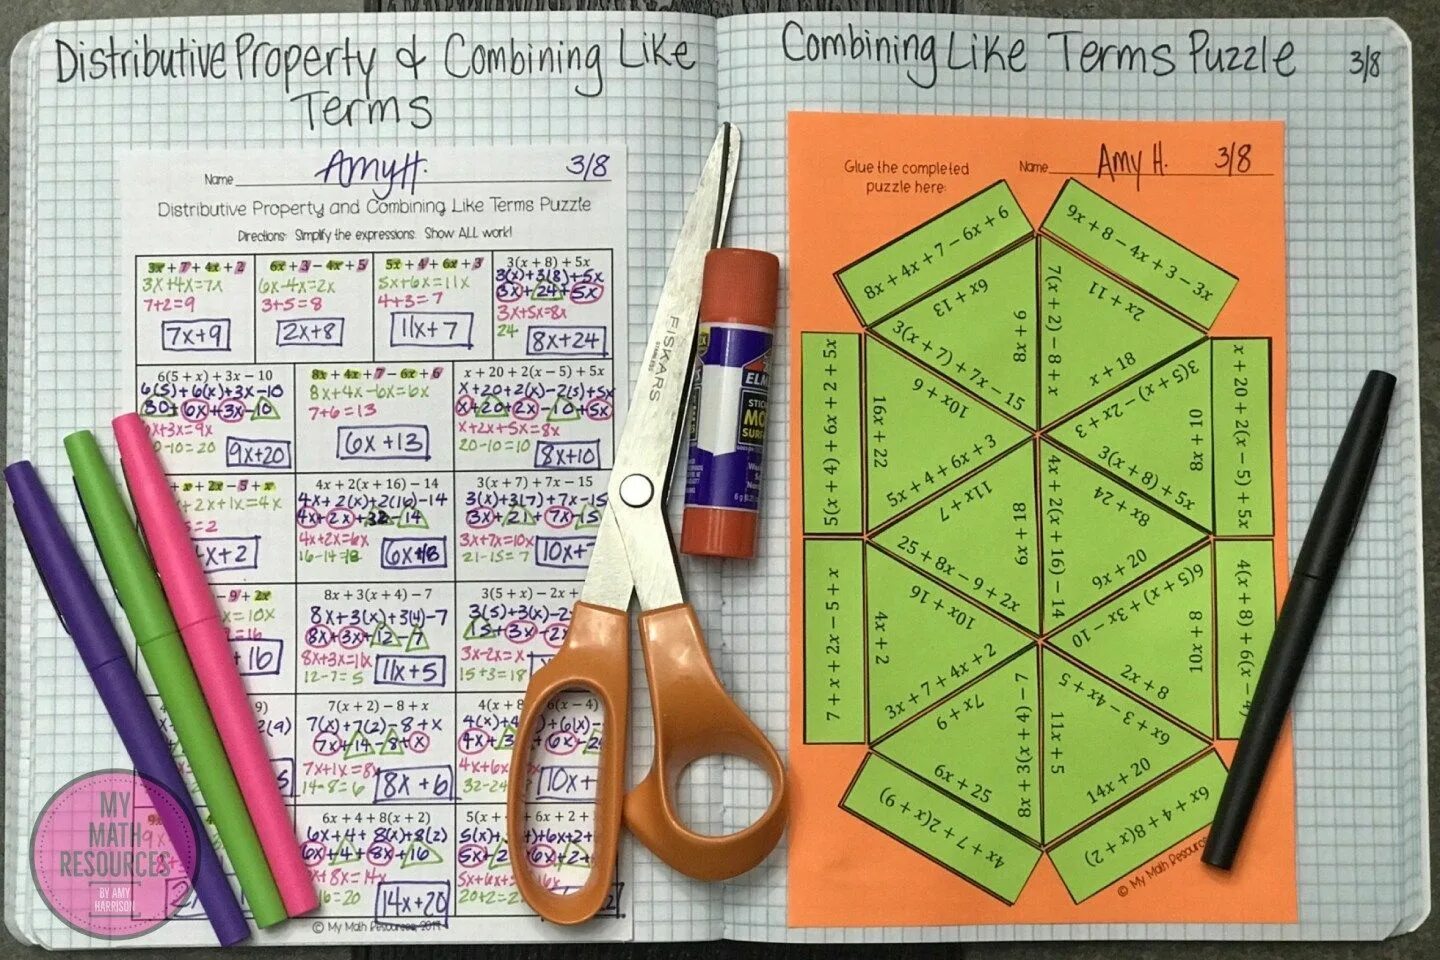 Distributive Property & Combining Like
Terms
Name Amy H. 3/8
Distributive Property and Combining Like Terms Puzzle
Directions: Simplify the expressions. Show ALL work!
3x + 7 + 4x + 2
3x+4x=7x
7+2=9
7x+9
6x + 3 - 4x + 5
6x-4x=2x
3+5=8
2x+8
5x + 4 + 6x + 3
5x+6x=11x
4+3=7
11x+7
3(x + 8) + 5x
3(x)+3(8)+5x
3x+24+5x
3x+5x=8x
24
8x+24
6(5 + x) + 3x - 10
6(5)+6(x)+3x-10
30+6x+3x-10
6x+3x=9x
20-10=20
9x+20
8x + 4x + 7 - 6x + 6
8x+4x-6x=6x
7+6=13
6x+13
x + 20 + 2(x - 5) + 5x
x+20+2(x)-2(5)+5x
x+20+2x-10+5x
x+2x+5x=8x
20-10=10
8x+10
+ x + 2x - 5 + x
+2x+1x=4x
=2
4x+2
4x + 2(x + 16) - 14
4x+2(x)+2(16)-14
4x+2x+32-14
4x+2x=6x
16-14=18
6x+18
3(x + 7) + 7x - 15
3(x)+3(7)+7x-15
3x+21+7x-15
3x+7x=10x
21-15=7
10x+
- 9 + 2x
=10x
=16
+16
8x + 3(x + 4) - 7
8x+3(x)+3(4)-7
8x+3x+12-7
8x+3x=11x
12-7=5
11x+5
3(5 + x) - 2x +
3(5)+3(x)-2x
15+3x-2x
3x-2x=x
15+3=18
7(x + 2) - 8 + x
7(x)+7(2)-8+x
7x+14-8+x
7x+1x=8x
14-8=6
8x+6
4(x + 8 6(x - 4)
4(x)+4 +6(x)-
4x+3 6x-2
4x+6x
32-24
10x+
6x + 4 + 8(x + 2)
6x+4+8(x)+8(2)
6x+4+8x+16
+8x=14x
=20
14x+20
5(x + + 6x + 2 +
5(x)+ +6x+2+
5x+2 6x+2+
5x+6x+ 16x
20+2=2
© My Math Resources, 2017
MY
MATH
RESOURCES
BY AMY
HARRISON
FISKARS
ELM
STICK
Combining Like Terms Puzzle 3/8
Glue the completed
puzzle here:
Name Amy H. 3/8
8x + 4x + 7 - 6x + 6
6x + 13
9x + 8 - 4x + 3 - 3x
2x + 11
3(x + 7) + 7x - 15
8x + 6
7(x + 2) - 8 + x
x + 18
5(x + 4) + 6x + 2 + 5x
16x + 22
10x + 6
3(5 + x) - 2x + 3
8x + 10
x + 20 + 2(x - 5) + 5x
5x + 4 + 6x + 3
11x + 7
3(x + 8) + 5x
8x + 24
25 + 8x - 9 + 2x
6x + 18
4x + 2(x + 16) - 14
9x + 20
6(5 + x) + 3x - 10
7 + x + 2x - 5 + x
4x + 2
10x + 16
10x + 8
4(x + 8) + 6(x - 4)
3x + 7 + 4x + 2
7x + 9
2x + 8
6x + 3 - 4x + 5
8x + 3(x + 4) - 7
11x + 5
6x + 25
14x + 20
4x + 7 + 2(x + 9)
6x + 4 + 8(x + 2)
© My Math Resources